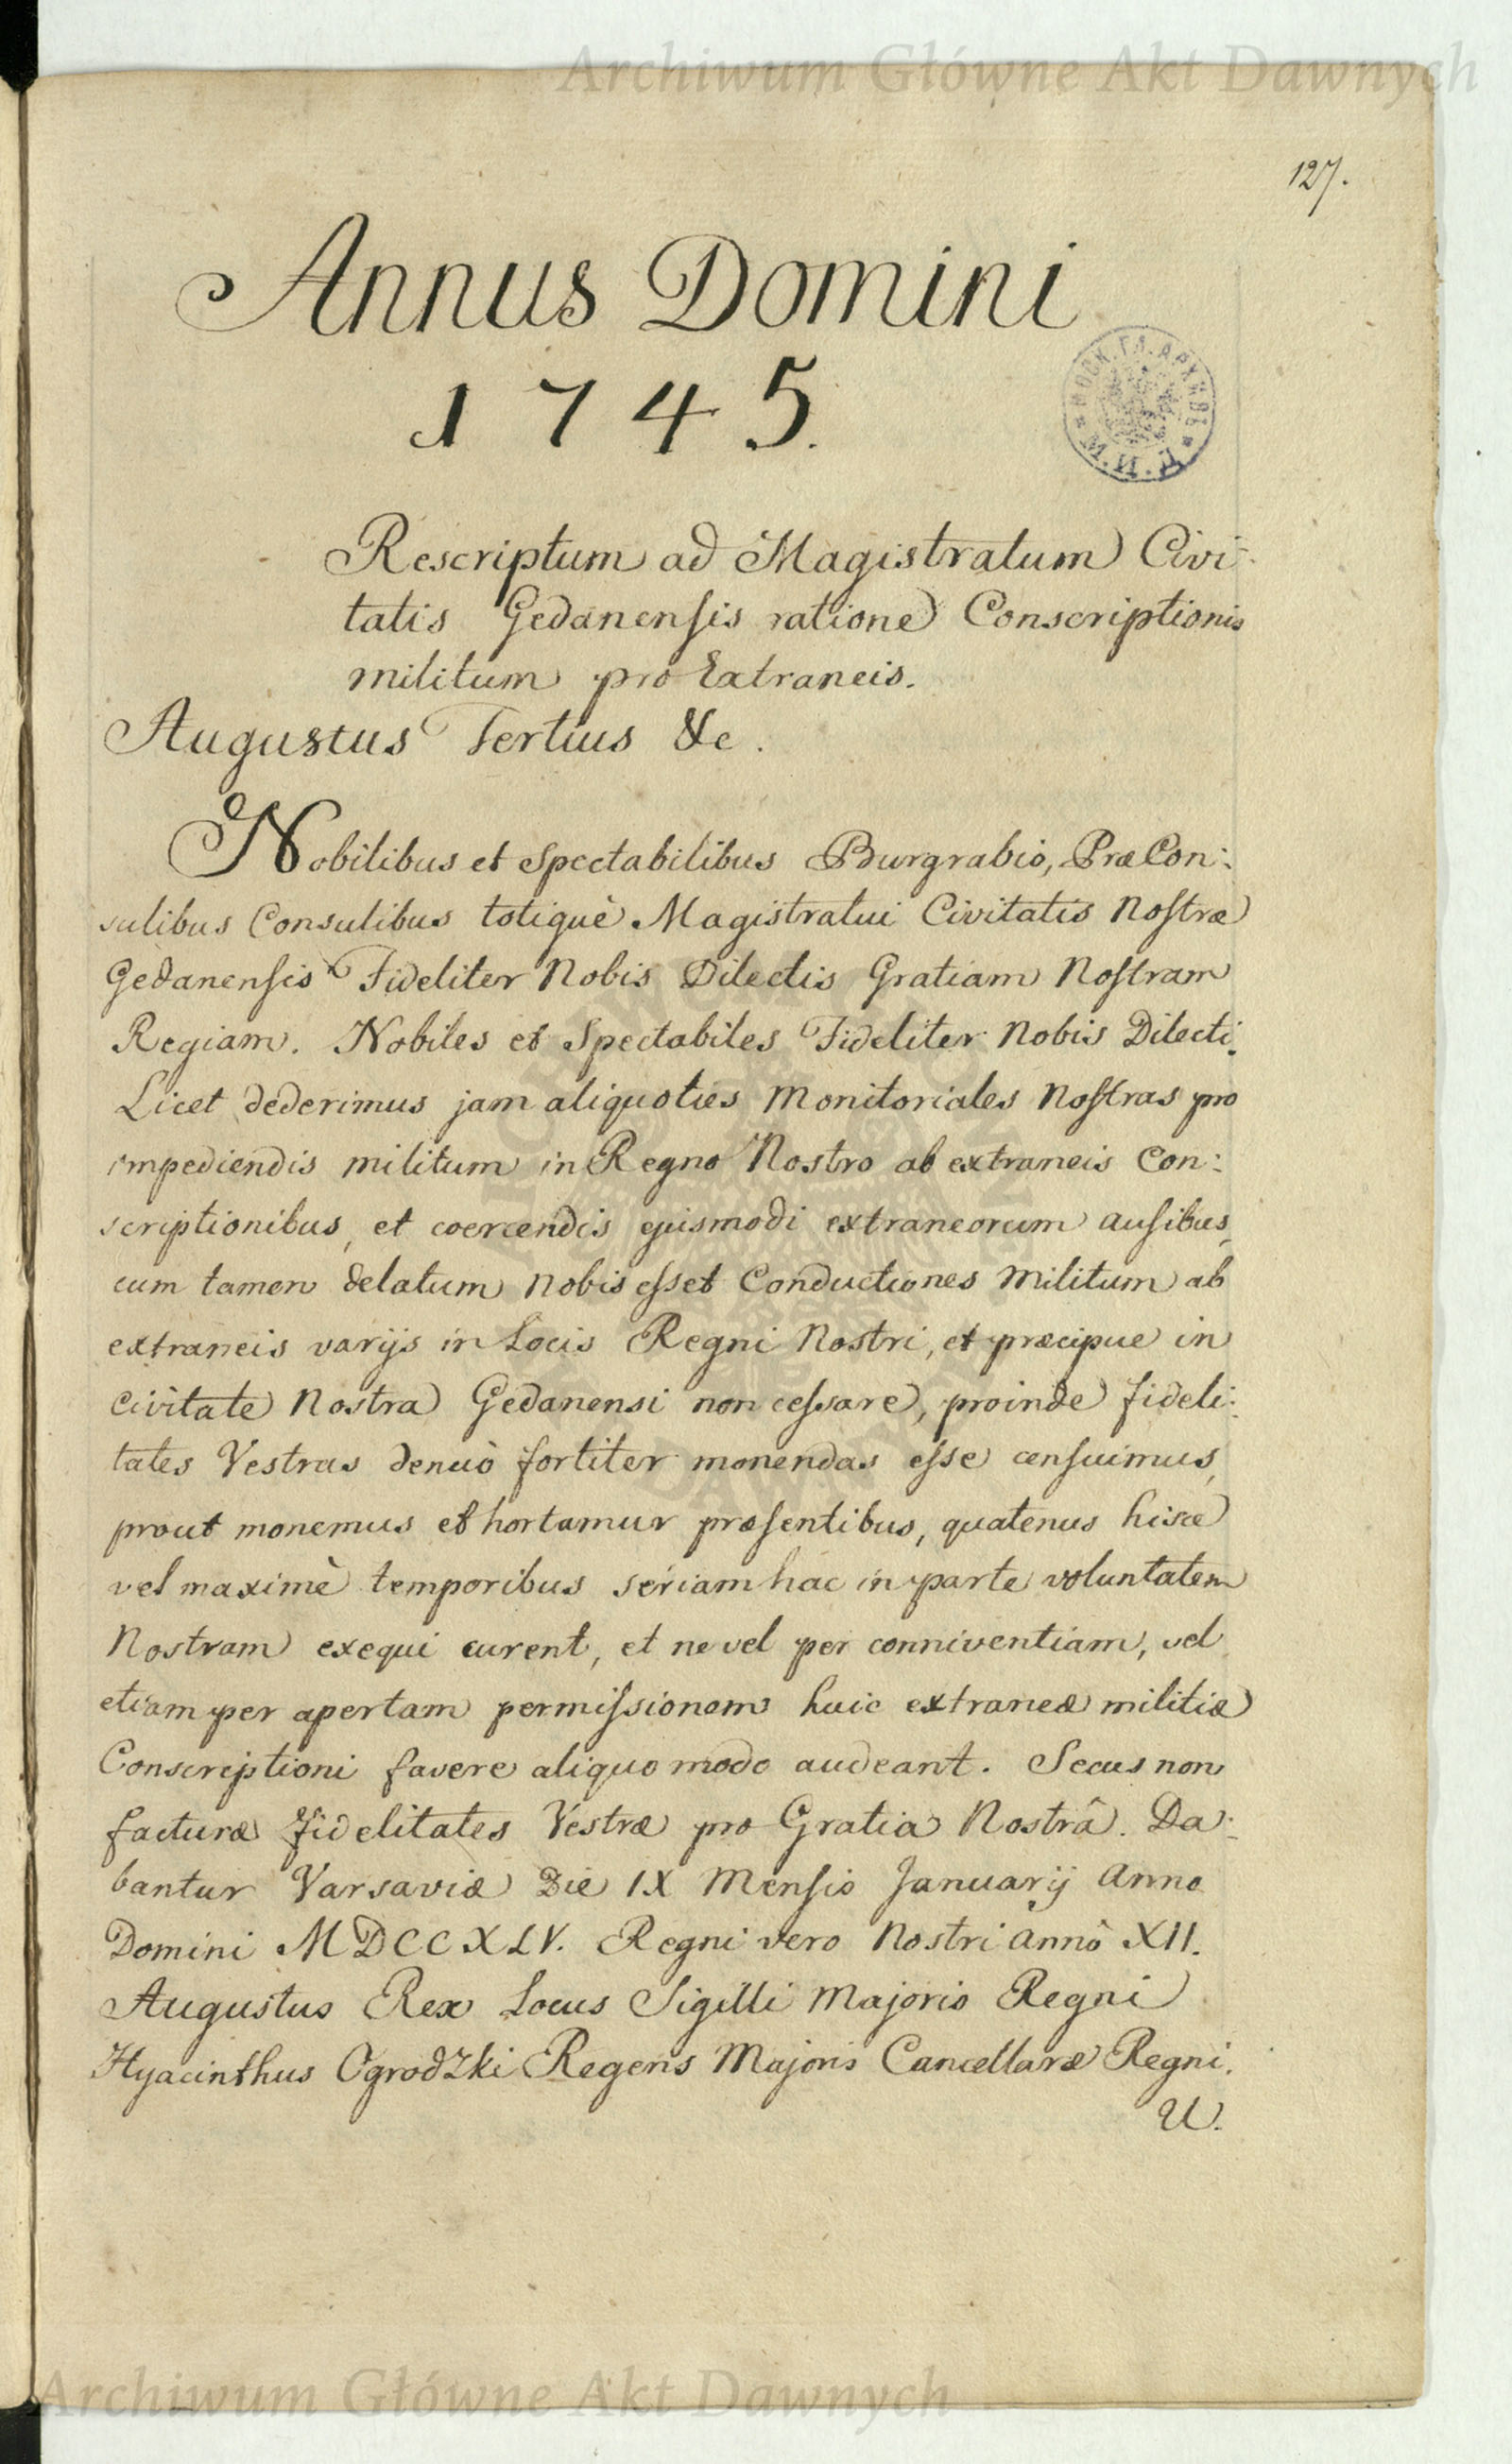 Archiwum Główne Akt Dawnych
127.
Annus Domini
1745.
МОСК.ГЛ.АРХИВЪ
М.И.Д.
Rescriptum ad Magistratum Civi-
tatis Gedanensis ratione Conscriptionis
militum pro Extraneis.
Augustus Tertius &c.
Nobilibus et Spectabilibus Burgrabio, PræCon:
sulibus Consulibus totiquè Magistratui Civitatis Nostræ
Gedanensis Fideliter Nobis Dilectis Gratiam Nostram
Regiam. Nobiles et Spectabiles Fideliter Nobis Dilecti.
Licet dederimus jam aliquoties Monitoriales Nostras pro
impediendis militum in Regno Nostro ab extraneis Con:
scriptionibus, et coercendis ejusmodi extraneorum ausibus,
cum tamen delatum Nobis esset Conductiones Militum ab
extraneis varijs in Locis Regni Nostri, et præcipue in
Civitate Nostra Gedanensi non cessare, proinde fideli:
tates Vestras denuò fortiter monendas esse censuimus,
prout monemus et hortamur præsentibus, quatenus hisce
vel maximè temporibus seriam hac in parte voluntatem
Nostram exequi curent, et ne vel per conniventiam, vel
etiam per apertam permissionem huic extraneæ militiæ
Conscriptioni favere aliquo modo audeant. Secus non
facturæ Fidelitates Vestræ pro Gratia Nostrâ. Da:
bantur Varsaviæ Die IX Mensis Januarij Anno
Domini MDCCXLV. Regni vero Nostri Annô XII.
Augustus Rex Locus Sigilli Majoris Regni
Hyacinthus Ogrodzki Regens Majoris Cancellaræ Regni.
U.
Archiwum Główne Akt Dawnych